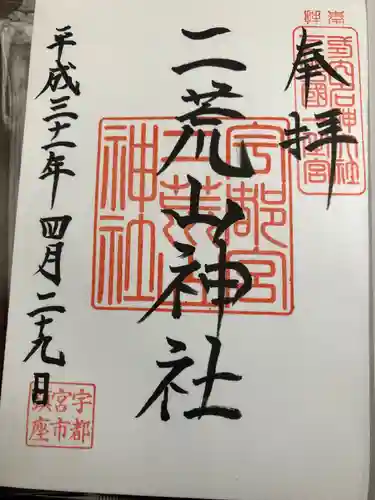 奉拝
二荒山神社
宇都宮
二荒山
神社
平成三十一年四月二十九日
宇都
宮市
鎮座